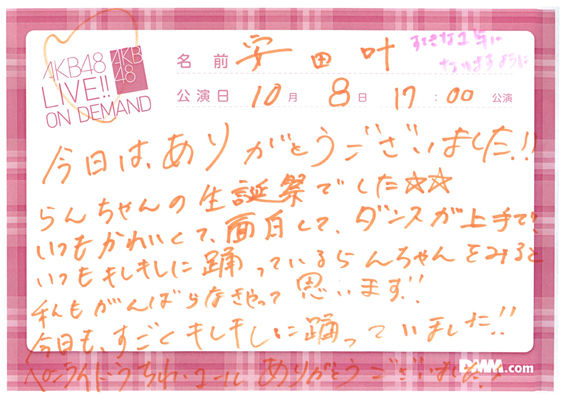 AKB48
LIVE!!
ON DEMAND
AKB
48
名前 安田叶
すてきな1年に
なりますように
公演日 10月8日 17:00 公演
今日は、ありがとうございました!!
らんちゃんの生誕祭でした☆☆
いつもかわいくて、面白くて、ダンスが上手で、
いつもキレキレに踊っているらんちゃんをみると
私もがんばらなきゃって思います!!
今日も、すごくキレキレに踊っていました!!
ペンライト、うちわ、コール、ありがとうございました!!
DMM.com